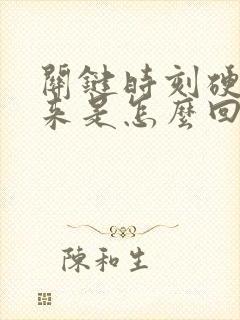 關鍵時刻硬
來是怎麼回
陳和生